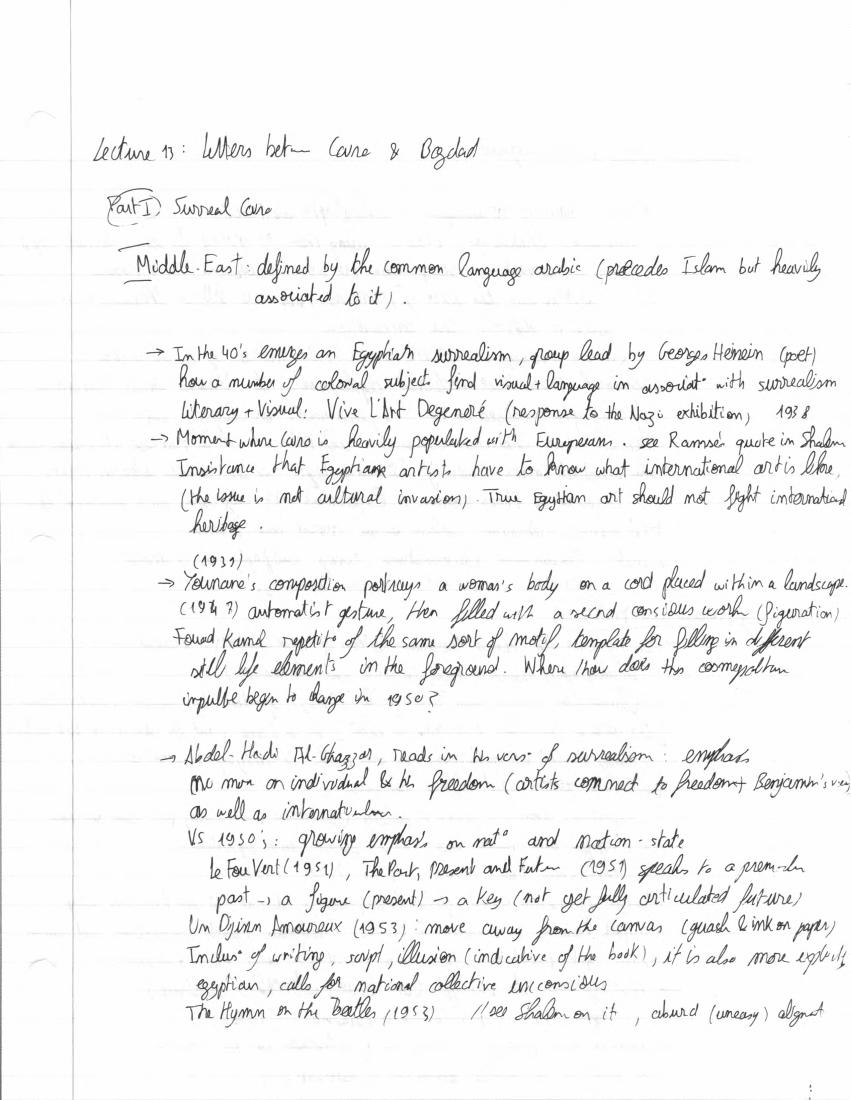 Lecture 13: Letters betw Cairo & Bagdad
Part I) Surreal Cairo
Middle-East: defined by the common language arabic (precedes Islam but heavily
associated to it).
→ In the 40's emerges an Egyptian surrealism, group lead by Georges Henein (poet)
how a number of colonial subjects find visual + language in associat° with surrealism
Literary + Visual: Vive L'Art Degeneré (response to the Nazi exhibition) 1938
→ Moment where Cairo is heavily populated with Europeans. see Ramsès quote in Shalem
Insistance that Egyptians artists have to know what international art is like,
(the issue is not cultural invasion). True Egyptian art should not fight international
heritage.
(1939)
→ Younane's composition portrays a woman's body on a cord placed within a landscape.
(194?) automatist gesture, then filled with a second consious work (figuration)
Fouad Kamel repetit° of the same sort of motif, template for filling in different
still life elements in the foreground. Where/how does this cosmopolitan
impulse begin to change in 1950?
→ Abdel-Hadi Al-Ghazzar, reads in his vers° of surrealism: emphasis
no more on individual & his freedom (artists connect to freedom + Benjamin's
as well as internationalism.
Vs 1950's: growing emphasis on nat° and nation-state
Le Fou Vert (1951), The Past, Present and Future (1951) speaks to a
past → a figure (present) → a key (not yet fully articulated future)
Un Djinn Amoureux (1953): move away from the canvas (guash & ink on paper)
Inclus° of writing, script, illusion (indicative of the book), it is also more explicitly
egyptian, calls for national collective unconscious
The Hymn on the Beatles (1953) // see Shalem on it, aburd (uneasy) alignmt